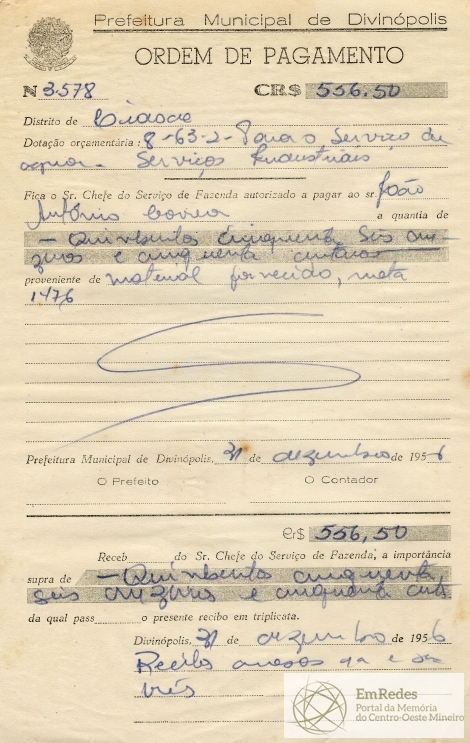 Prefeitura Municipal de Divinópolis
ORDEM DE PAGAMENTO
N 3.578 CR$ 556,50
Distrito de Cidade
Dotação orçamentária: 8-63-2- Para o Serviço de
agua. Serviços Industriais
Fica o Sr. Chefe do Serviço de Fazenda autorizado a pagar ao sr. João
Antônio Correa a quantia de
- Quinhentos cinquenta seis cru-
zeiros e cinquenta centavos
proveniente de material fornecido, nota
1476
Prefeitura Municipal de Divinópolis, 31 de dezembro de 1956
O Prefeito O Contador
Cr$ 556,50
Receb do Sr. Chefe do Serviço de Fazenda, a importância
supra de - Quinhentos cinquenta
seis cruzeiros e cinquenta cents
da qual pass o presente recibo em triplicata.
Divinópolis, 31 de dezembro de 1956
Recibo anexos
três
EmRedes
Portal da Memória
do Centro-Oeste Mineiro